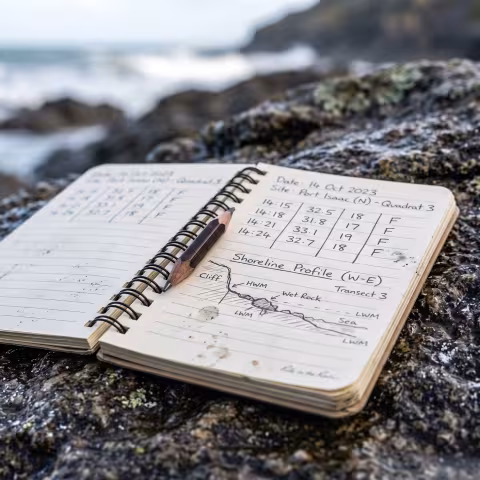 Date: 14 Oct 2023
Quadrat 3
Date: 14 Oct 2023
Site: Port Isaac (N) - Quadrat 3
14:15 32.5 18 F
14:18 31.8 17 F
14:21 33.1 19 F
14:24 32.7 18 F
Shoreline Profile (W-E)
Transect 3
Cliff
HWM
Wet Rock
LWM
LWM
Sea
LWM